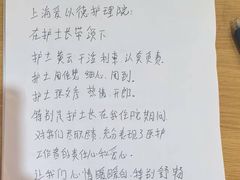 上海爱以德护理院:
在护士长带领下
护士 黄云 干活利索 认真负责.
护士 周佳赞 细心、周到.
护士 热情 开朗.
特别是护士长在我住院期间
对我们尽职尽责. 充分表现了医护
工作者的责任心和爱心.
让我们心情暖暖的. 特别舒畅